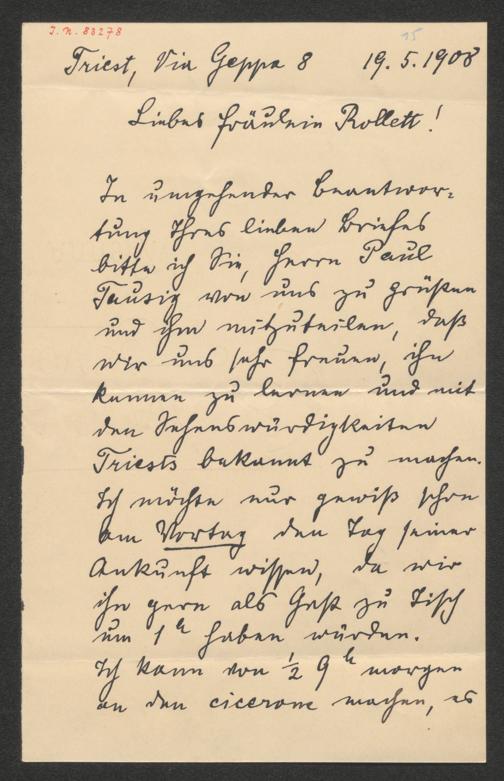 J. N. 83278
15
Triest, Via Geppa 8 19. 5. 1908
Liebes Fräulein Rollett!
In umgehender Beantwor-
tung Ihres lieben Briefes
bitte ich Sie, Herrn Paul
Tausig von uns zu grüßen
und ihm mitzuteilen, daß
wir uns sehr freuen, ihn
kennen zu lernen und mit
den Sehenswürdigkeiten
Triests bekannt zu machen.
Ich möchte nur gewiß schon
am Vortag den Tag seiner
Ankunft wissen, da wir
ihn gern als Gast zu Tisch
um 1 h haben würden.
Ich kann von ½ 9 h morgen
an den cicerone machen, es